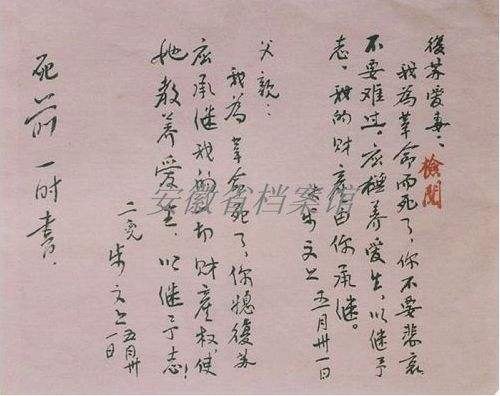 後苏爱妻：
我為革命而死了，你不要悲哀
不要难过，应極养爱生，以继予
志。我的财产由你承继。
步文上 五月卅一日
檢閱
父親：
我為革命死了，你媳復苏
应承继我的一切财產权，使
她教养爱生，以继予志！
二児 步文上 五月卅一日
死前一时書.
安徽省档案馆